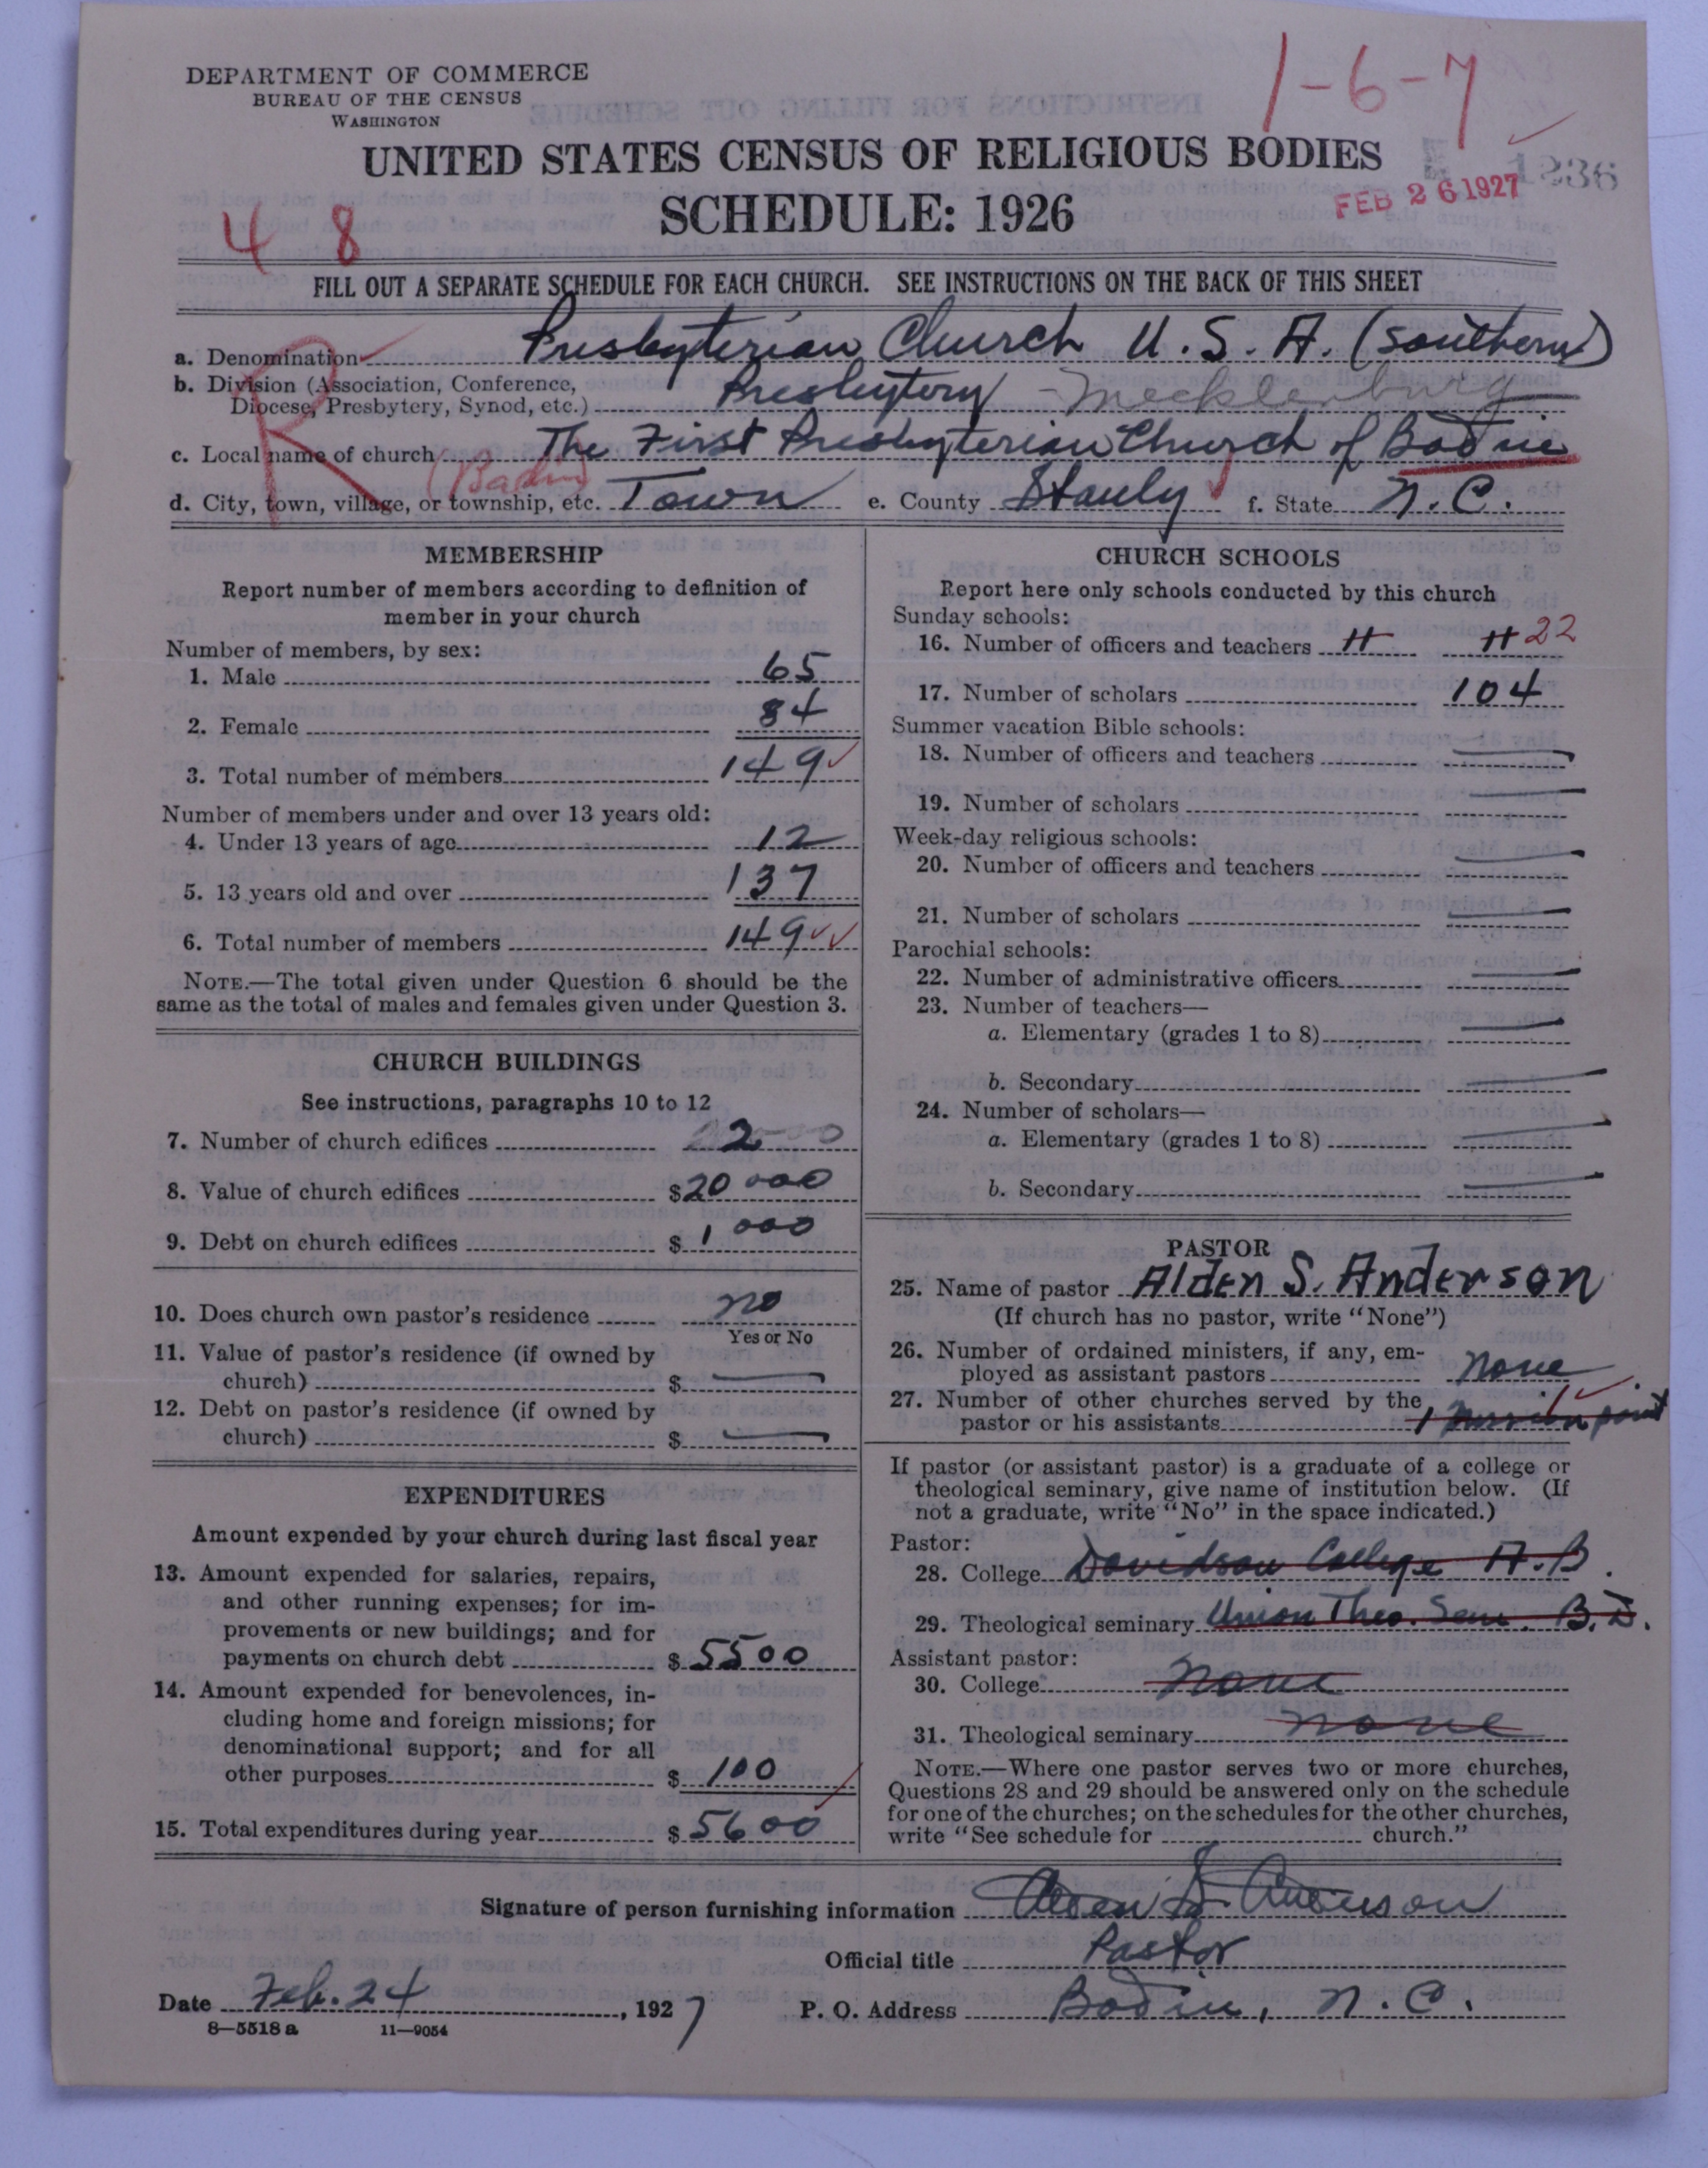 DEPARTMENT OF COMMERCE
BUREAU OF THE CENSUS
WASHINGTON
1-6-7
UNITED STATES CENSUS OF RELIGIOUS BODIES
SCHEDULE: 1926
1236
FEB 26 1927
4 8
FILL OUT A SEPARATE SCHEDULE FOR EACH CHURCH. SEE INSTRUCTIONS ON THE BACK OF THIS SHEET
R
a. Denomination Presbyterian Church U.S.A. (Southern)
b. Division (Association, Conference,
Diocese, Presbytery, Synod, etc.) Presbytery - Mecklenburg
c. Local name of church The First Presbyterian Church of Badin
(Badin)
d. City, town, village, or township, etc. Town e. County Stanly f. State N.C.
MEMBERSHIP
Report number of members according to definition of
member in your church
Number of members, by sex:
1. Male 65
2. Female 84
3. Total number of members 149
Number of members under and over 13 years old:
4. Under 13 years of age 12
5. 13 years old and over 137
6. Total number of members 149
NOTE.—The total given under Question 6 should be the
same as the total of males and females given under Question 3.
CHURCH BUILDINGS
See instructions, paragraphs 10 to 12
7. Number of church edifices 2
8. Value of church edifices $20 000
9. Debt on church edifices $1 000
10. Does church own pastor's residence no
Yes or No
11. Value of pastor's residence (if owned by
church) $ —
12. Debt on pastor's residence (if owned by
church) $ —
EXPENDITURES
Amount expended by your church during last fiscal year
13. Amount expended for salaries, repairs,
and other running expenses; for im-
provements or new buildings; and for
payments on church debt $5500
14. Amount expended for benevolences, in-
cluding home and foreign missions; for
denominational support; and for all
other purposes $100
15. Total expenditures during year $5600
CHURCH SCHOOLS
Report here only schools conducted by this church
Sunday schools:
16. Number of officers and teachers 22
17. Number of scholars 104
Summer vacation Bible schools:
18. Number of officers and teachers —
19. Number of scholars —
Week-day religious schools:
20. Number of officers and teachers —
21. Number of scholars —
Parochial schools:
22. Number of administrative officers —
23. Number of teachers—
a. Elementary (grades 1 to 8) —
b. Secondary —
24. Number of scholars—
a. Elementary (grades 1 to 8) —
b. Secondary —
PASTOR
25. Name of pastor Alden S. Anderson
(If church has no pastor, write "None")
26. Number of ordained ministers, if any, em-
ployed as assistant pastors none
27. Number of other churches served by the 1
pastor or his assistants 1 mission point
If pastor (or assistant pastor) is a graduate of a college or
theological seminary, give name of institution below. (If
not a graduate, write "No" in the space indicated.)
Pastor:
28. College Davidson College A.B.
29. Theological seminary Union Theo. Sem. B.D.
Assistant pastor:
30. College none
31. Theological seminary none
NOTE.—Where one pastor serves two or more churches,
Questions 28 and 29 should be answered only on the schedule
for one of the churches; on the schedules for the other churches,
write "See schedule for church."
Signature of person furnishing information Alden S. Anderson
Official title Pastor
Date Feb. 24, 1927 P. O. Address Badin, N.C.
8—5518 a 11—9054